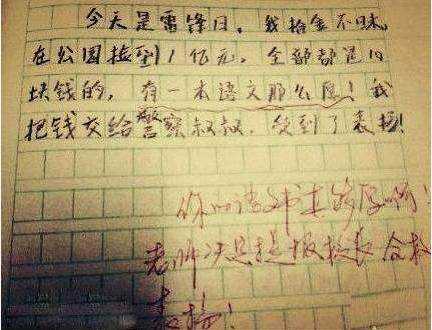 今天是雷锋日，我拾金不昧，
在公园捡到1亿元，全部都是10
块钱的，有一本语文那么厚！我
把钱交给警察叔叔，受到了表扬！
你的语文书真够厚啊！
老师决定提报校长 全校
表扬！